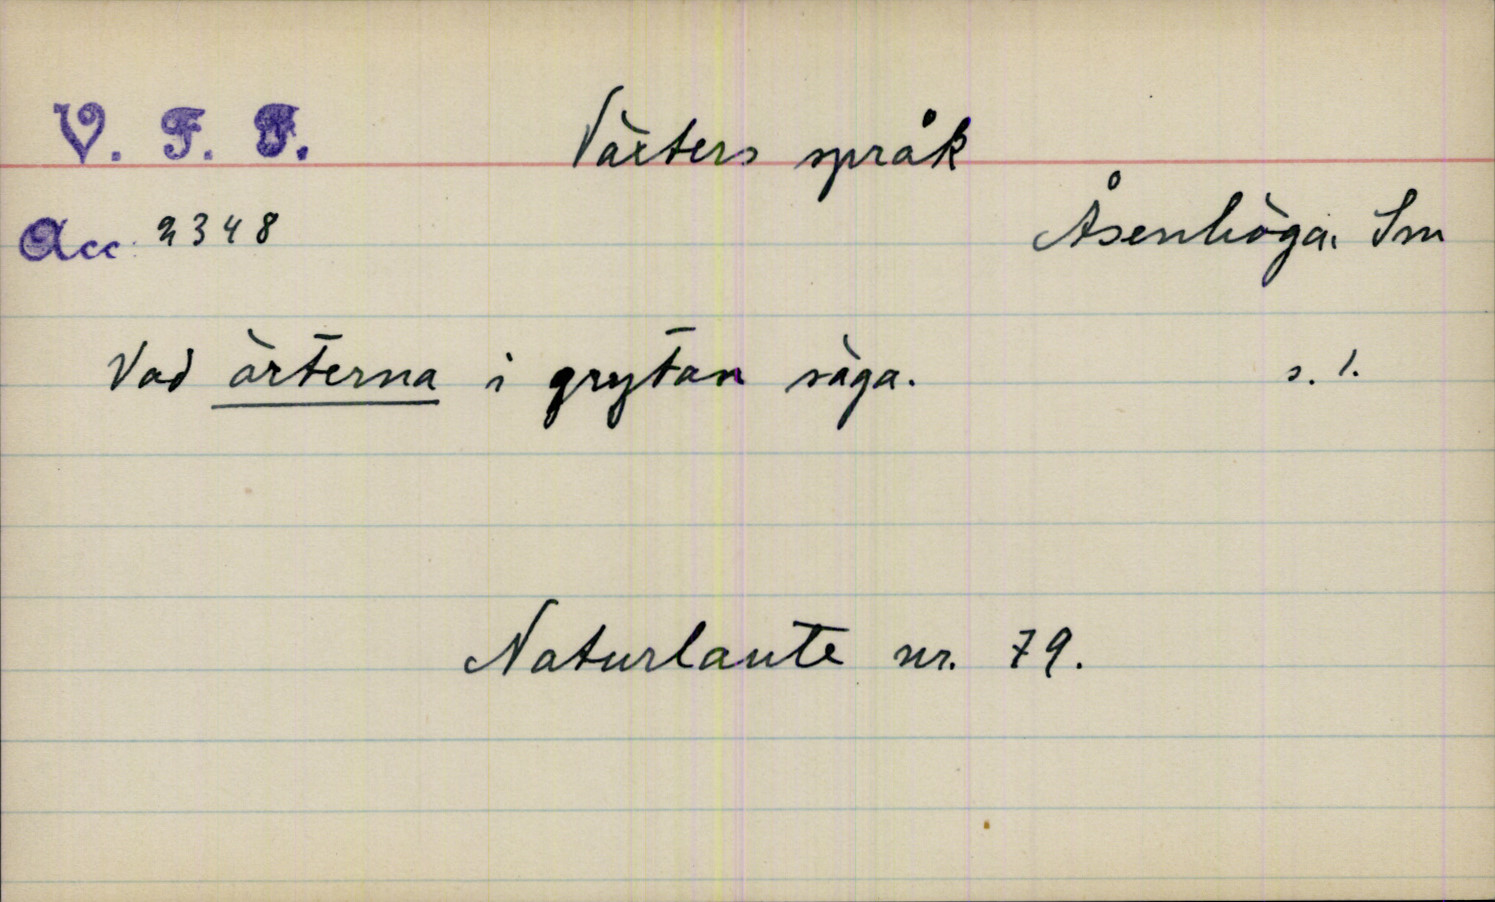 V. F. F. Växters språk
Acc. 2348 Åsenhöga, Sm
Vad ärterna i grytan säga. s. 1.
Naturlaute nr. 79.